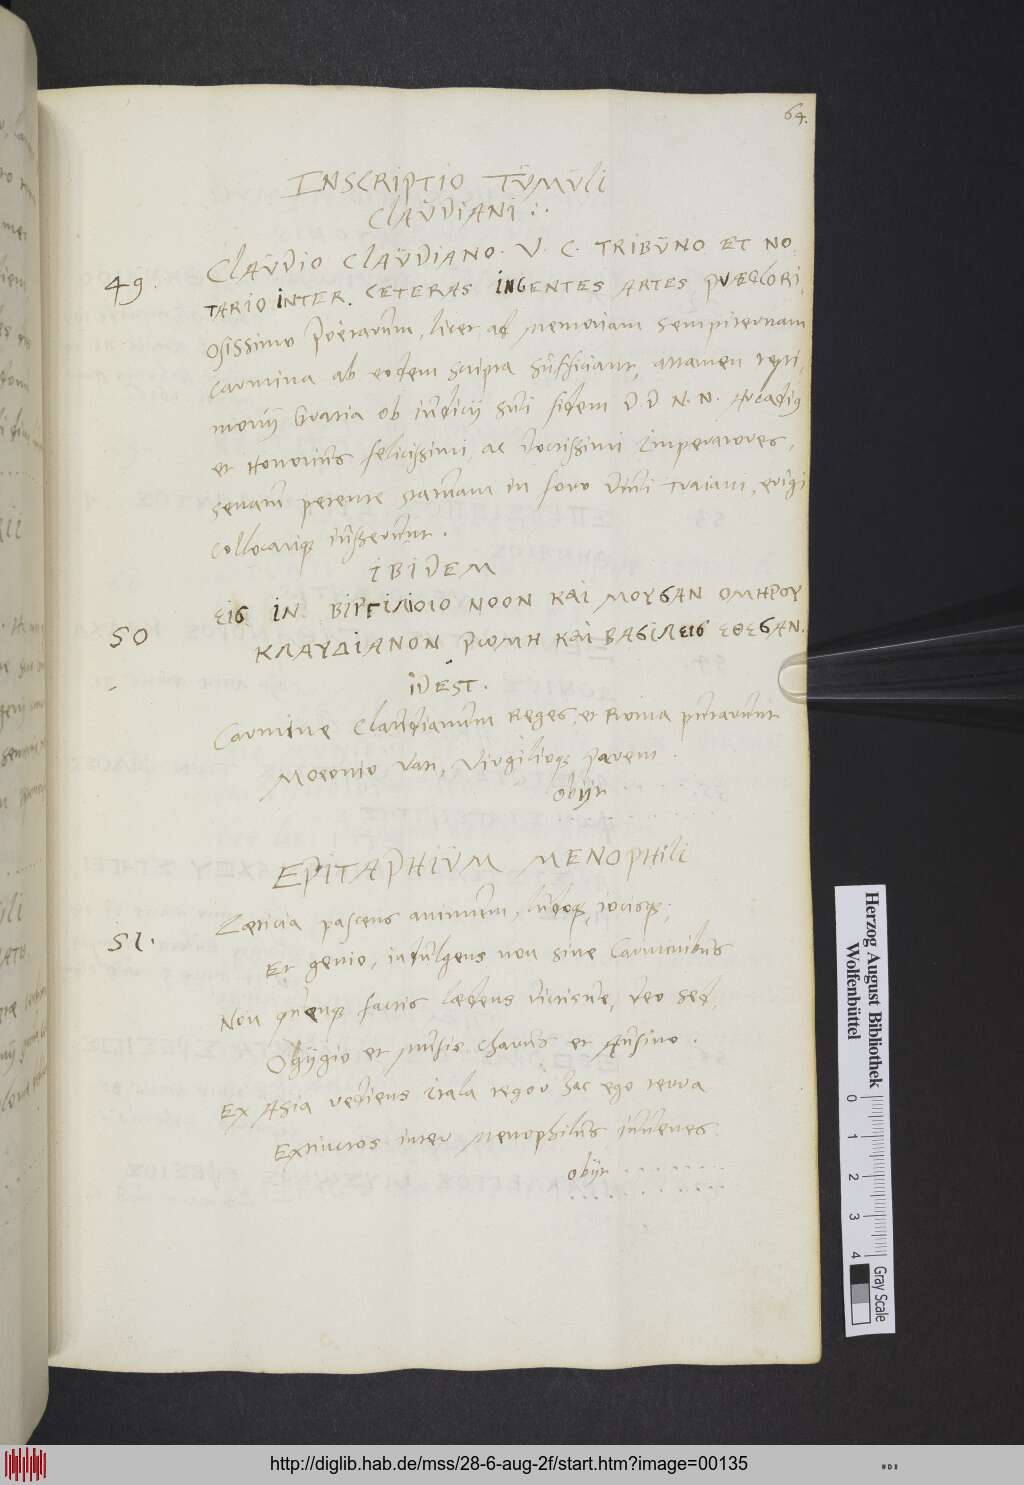 64.
INSCRIPTIO TUMULI
CLAUDIANI :.
49.
CLAUDIO CLAUDIANO. V. C. TRIBUNO ET NO,
TARIO INTER. CETERAS INGENTES ARTES PRÆGLORI,
osissimo Poëtarum, licet ad memoriam sempiternam
Carmina ab eodem scripta sufficiant, attamen testi,
monij Gratia ob iudicij sui fidem D. D N. N. Arcadius
et Honorius felicissimi, ac doctissimi Imperatores,
senatu petente statuam in foro Divi Traiani, erigi
collocarique iusserunt.
IBIDEM
50
ΕΙϹ ΙΝ. ΒΙΡΓΙΛΙΟΙΟ ΝΟΟΝ ΚΑΙ ΜΟΥϹΑΝ ΟΜΗΡΟΥ
ΚΛΑΥΔΙΑΝΟΝ ΡΩΜΗ ΚΑΙ ΒΑϹΙΛΕΙϹ ΕΘΕϹΑΝ.
IDEST.
Carmine Claudianum Reges, et Roma putarunt
Moeonio Vati, Virgilioque parem.
obijt . . . . . .
EPITAPHIUM MENOPHILI
51.
Læticia pascens animum, ludoque, iocisque,
Et genio, indulgens non sine Carminibus
Non quenque factis lædens dictisve, Deo sed,
Ogÿgio et musis charus et Ausino.
Ex Asia vediens itala tegor hac ego terra
Extinctos inter Menophilus iuvenes.
obijt . . . . . .
Herzog August Bibliothek
Wolfenbüttel
0 1 2 3 4
Gray Scale
http://diglib.hab.de/mss/28-6-aug-2f/start.htm?image=00135